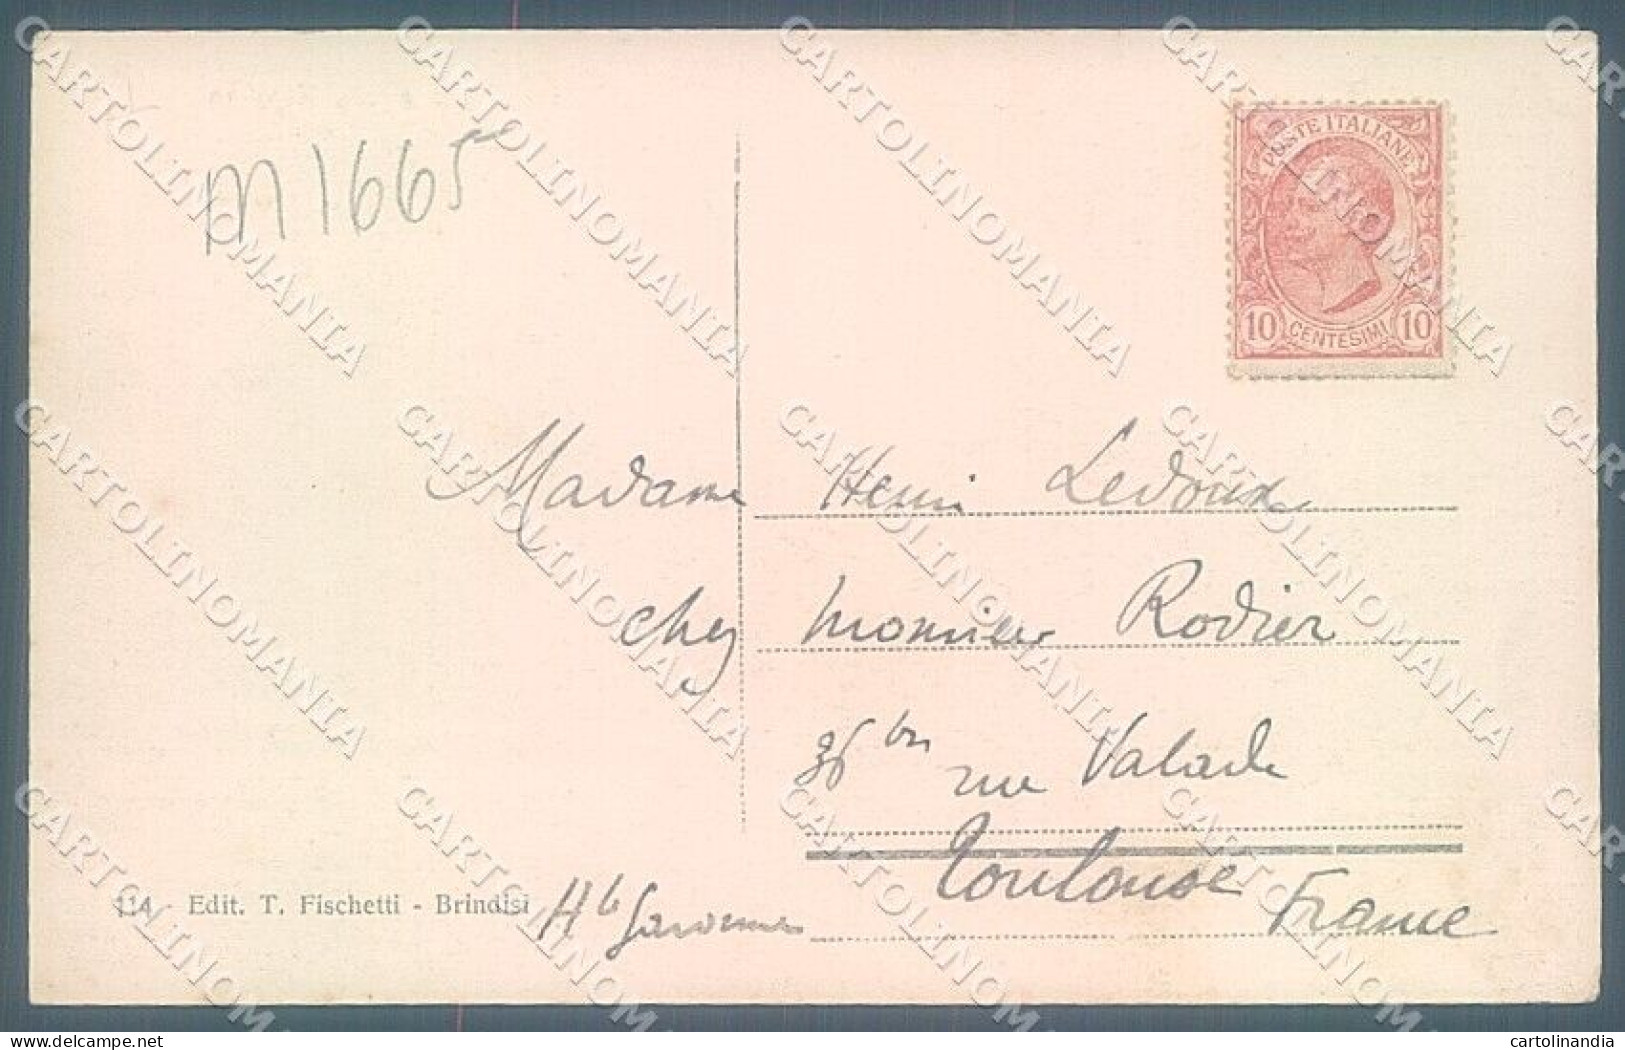 m1665
POSTE ITALIANE
10 CENTESIMI 10
Madame Henri Ledoux
chez monsieur Rodier
36 bis rue Valade
Toulouse
Hte Garonne France
114 - Edit. T. Fischetti - Brindisi
CARTOLINOMANIA
cartolinandia